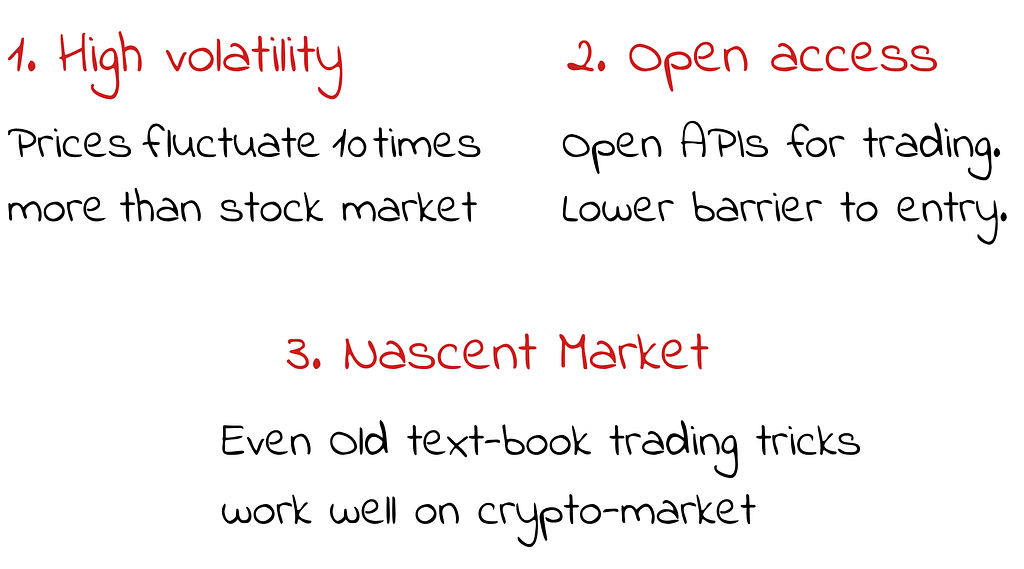 1. High volatility
Prices fluctuate 10 times
more than stock market
2. Open access
Open APIs for trading.
Lower barrier to entry.
3. Nascent Market
Even Old text-book trading tricks
work well on crypto-market